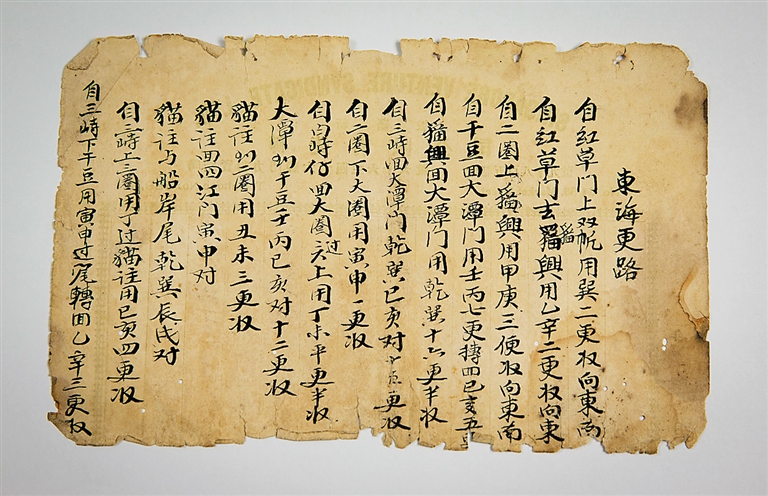 東海更路
自红草门上双帆用巽二更收向東南
自红草门去猫興用乙辛二更收向東
自二圈上猫興用甲庚三便收向東南
自干豆回大潭门用壬丙七更轉回巳亥五
自猫興回大潭门用乾巽十六更半收
自三峙回大潭门乾巽巳亥对十五更收
自二圈下大圈用寅申一更收
自四峙仔回大圈过上用丁未平更半收
大潭刈干豆壬丙巳亥对十二更收
猫註刈二圈用丑未三更收
猫註回四江门寅申对
猫註与船岸尾乾巽辰戌对
自三峙上二圈用丁过猫註用巳亥四更收
自三峙下干豆用寅申过尾轉回乙辛三更收
VENTURE SYNDICATE